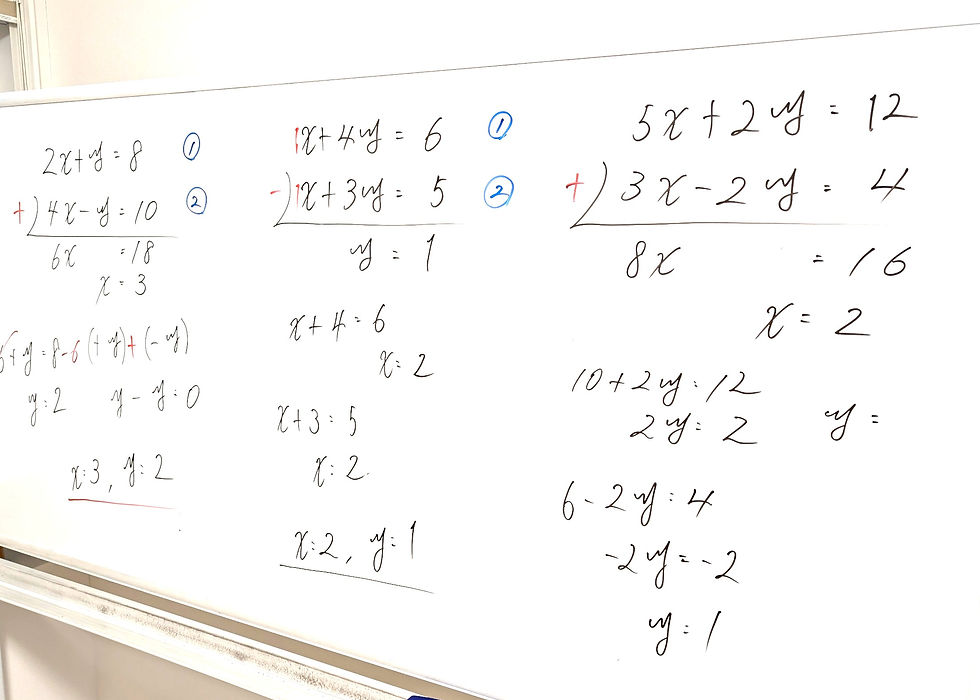 2x+y=8 ①
+) 4x-y=10 ②
6x =18
x=3
6+y=8-6 (+y)+(-y)
y=2 y-y=0
x=3, y=2
1x+4y=6 ①
-) 1x+3y=5 ②
y=1
x+4=6
x=2
x+3=5
x=2.
x=2, y=1
5x+2y=12
+) 3x-2y=4
8x =16
x=2
10+2y=12
2y=2 y=
6-2y=4
-2y=-2
y=1